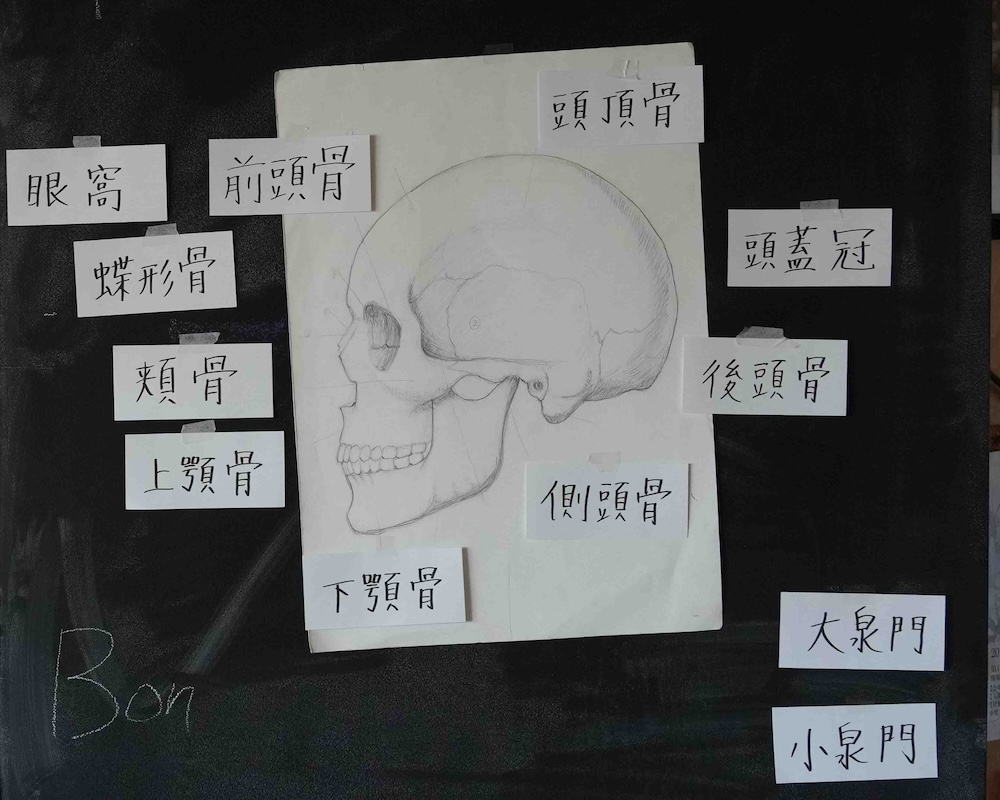 頭頂骨
眼窩
前頭骨
頭蓋冠
蝶形骨
頬骨
後頭骨
上顎骨
側頭骨
下顎骨
大泉門
小泉門
Bon